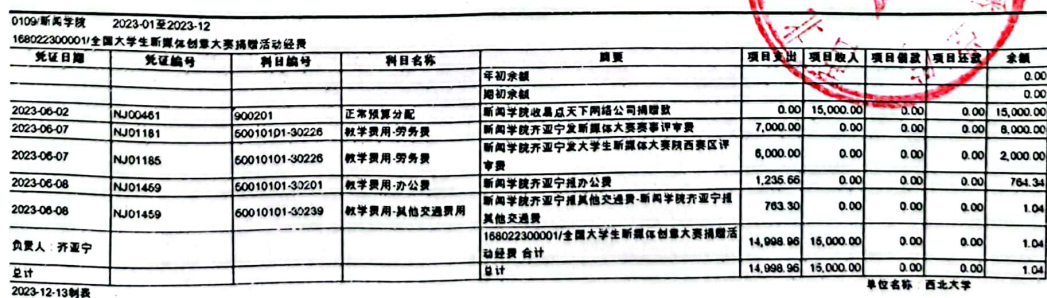 0109/新闻学院 2023-01至2023-12
168022300001/全国大学生新媒体创意大赛捐赠活动经费
凭证日期 凭证编号 科目编号 科目名称 摘要 项目支出 项目收入 项目借款 项目还款 余额
年初余额 0.00
期初余额 0.00
2023-06-02 NJ00461 900201 正常预算分配 新闻学院收易点天下网络公司捐赠款 0.00 15,000.00 0.00 0.00 15,000.00
2023-06-07 NJ01181 50010101-30226 教学费用-劳务费 新闻学院齐亚宁发新媒体大赛赛事评审费 7,000.00 0.00 0.00 0.00 8,000.00
2023-06-07 NJ01185 50010101-30226 教学费用-劳务费 新闻学院齐亚宁发大学生新媒体大赛陕西赛区评
审费 6,000.00 0.00 0.00 0.00 2,000.00
2023-06-08 NJ01459 50010101-30201 教学费用-办公费 新闻学院齐亚宁报办公费 1,235.66 0.00 0.00 0.00 764.34
2023-06-08 NJ01459 50010101-30239 教学费用-其他交通费用 新闻学院齐亚宁报其他交通费-新闻学院齐亚宁报
其他交通费 763.30 0.00 0.00 0.00 1.04
负责人:齐亚宁 168022300001/全国大学生新媒体创意大赛捐赠活
动经费 合计 14,998.96 15,000.00 0.00 0.00 1.04
总计 总计 14,998.96 15,000.00 0.00 0.00 1.04
单位名称 西北大学
2023-12-13制表